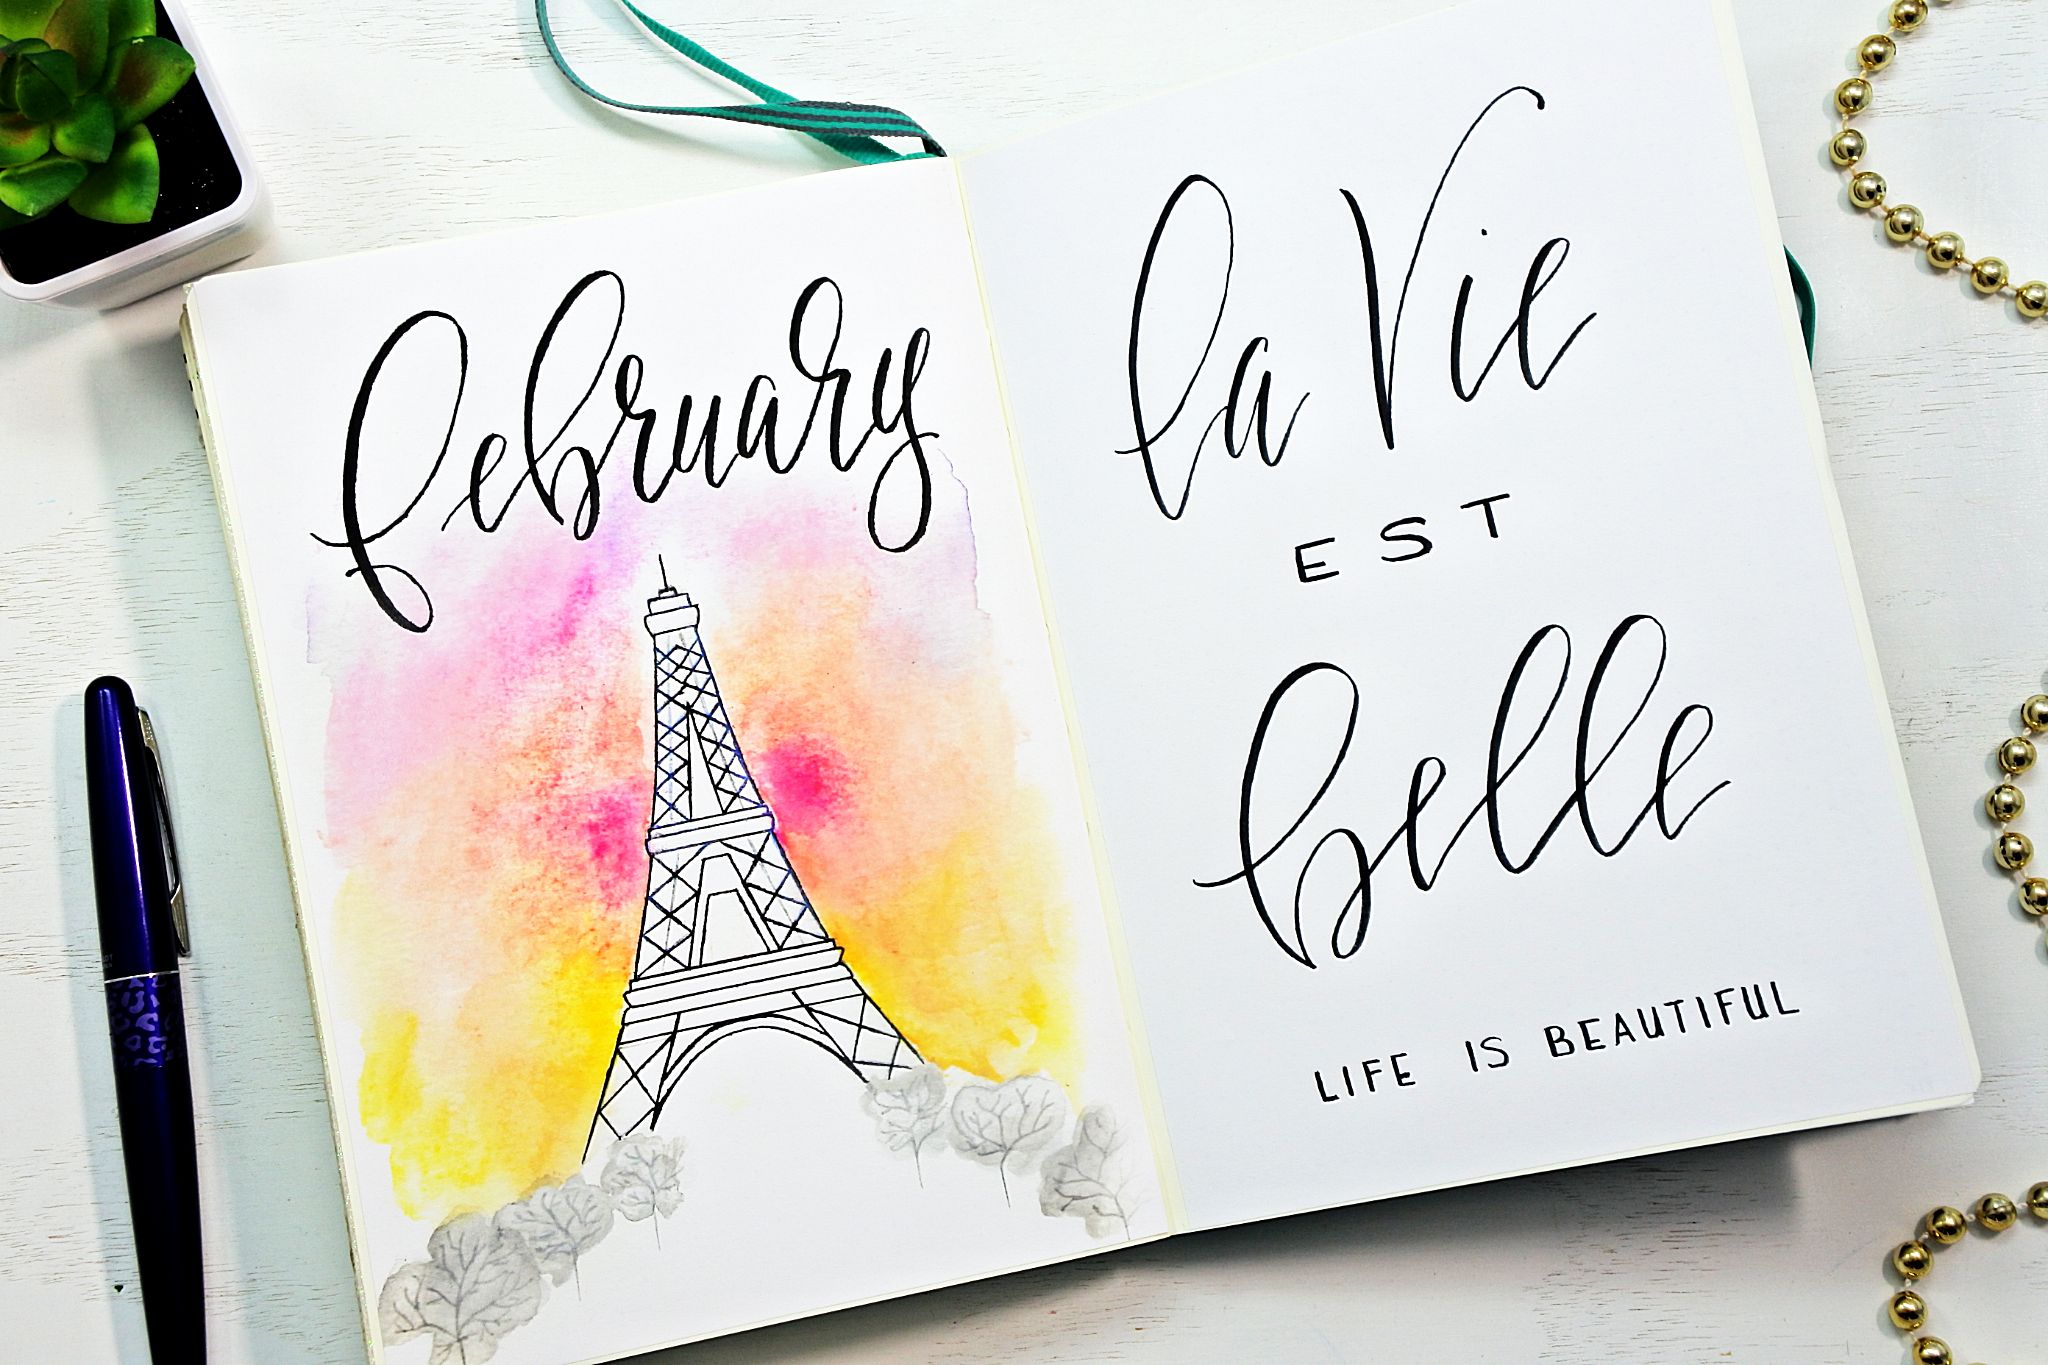 february
la Vie
EST
belle
LIFE IS BEAUTIFUL